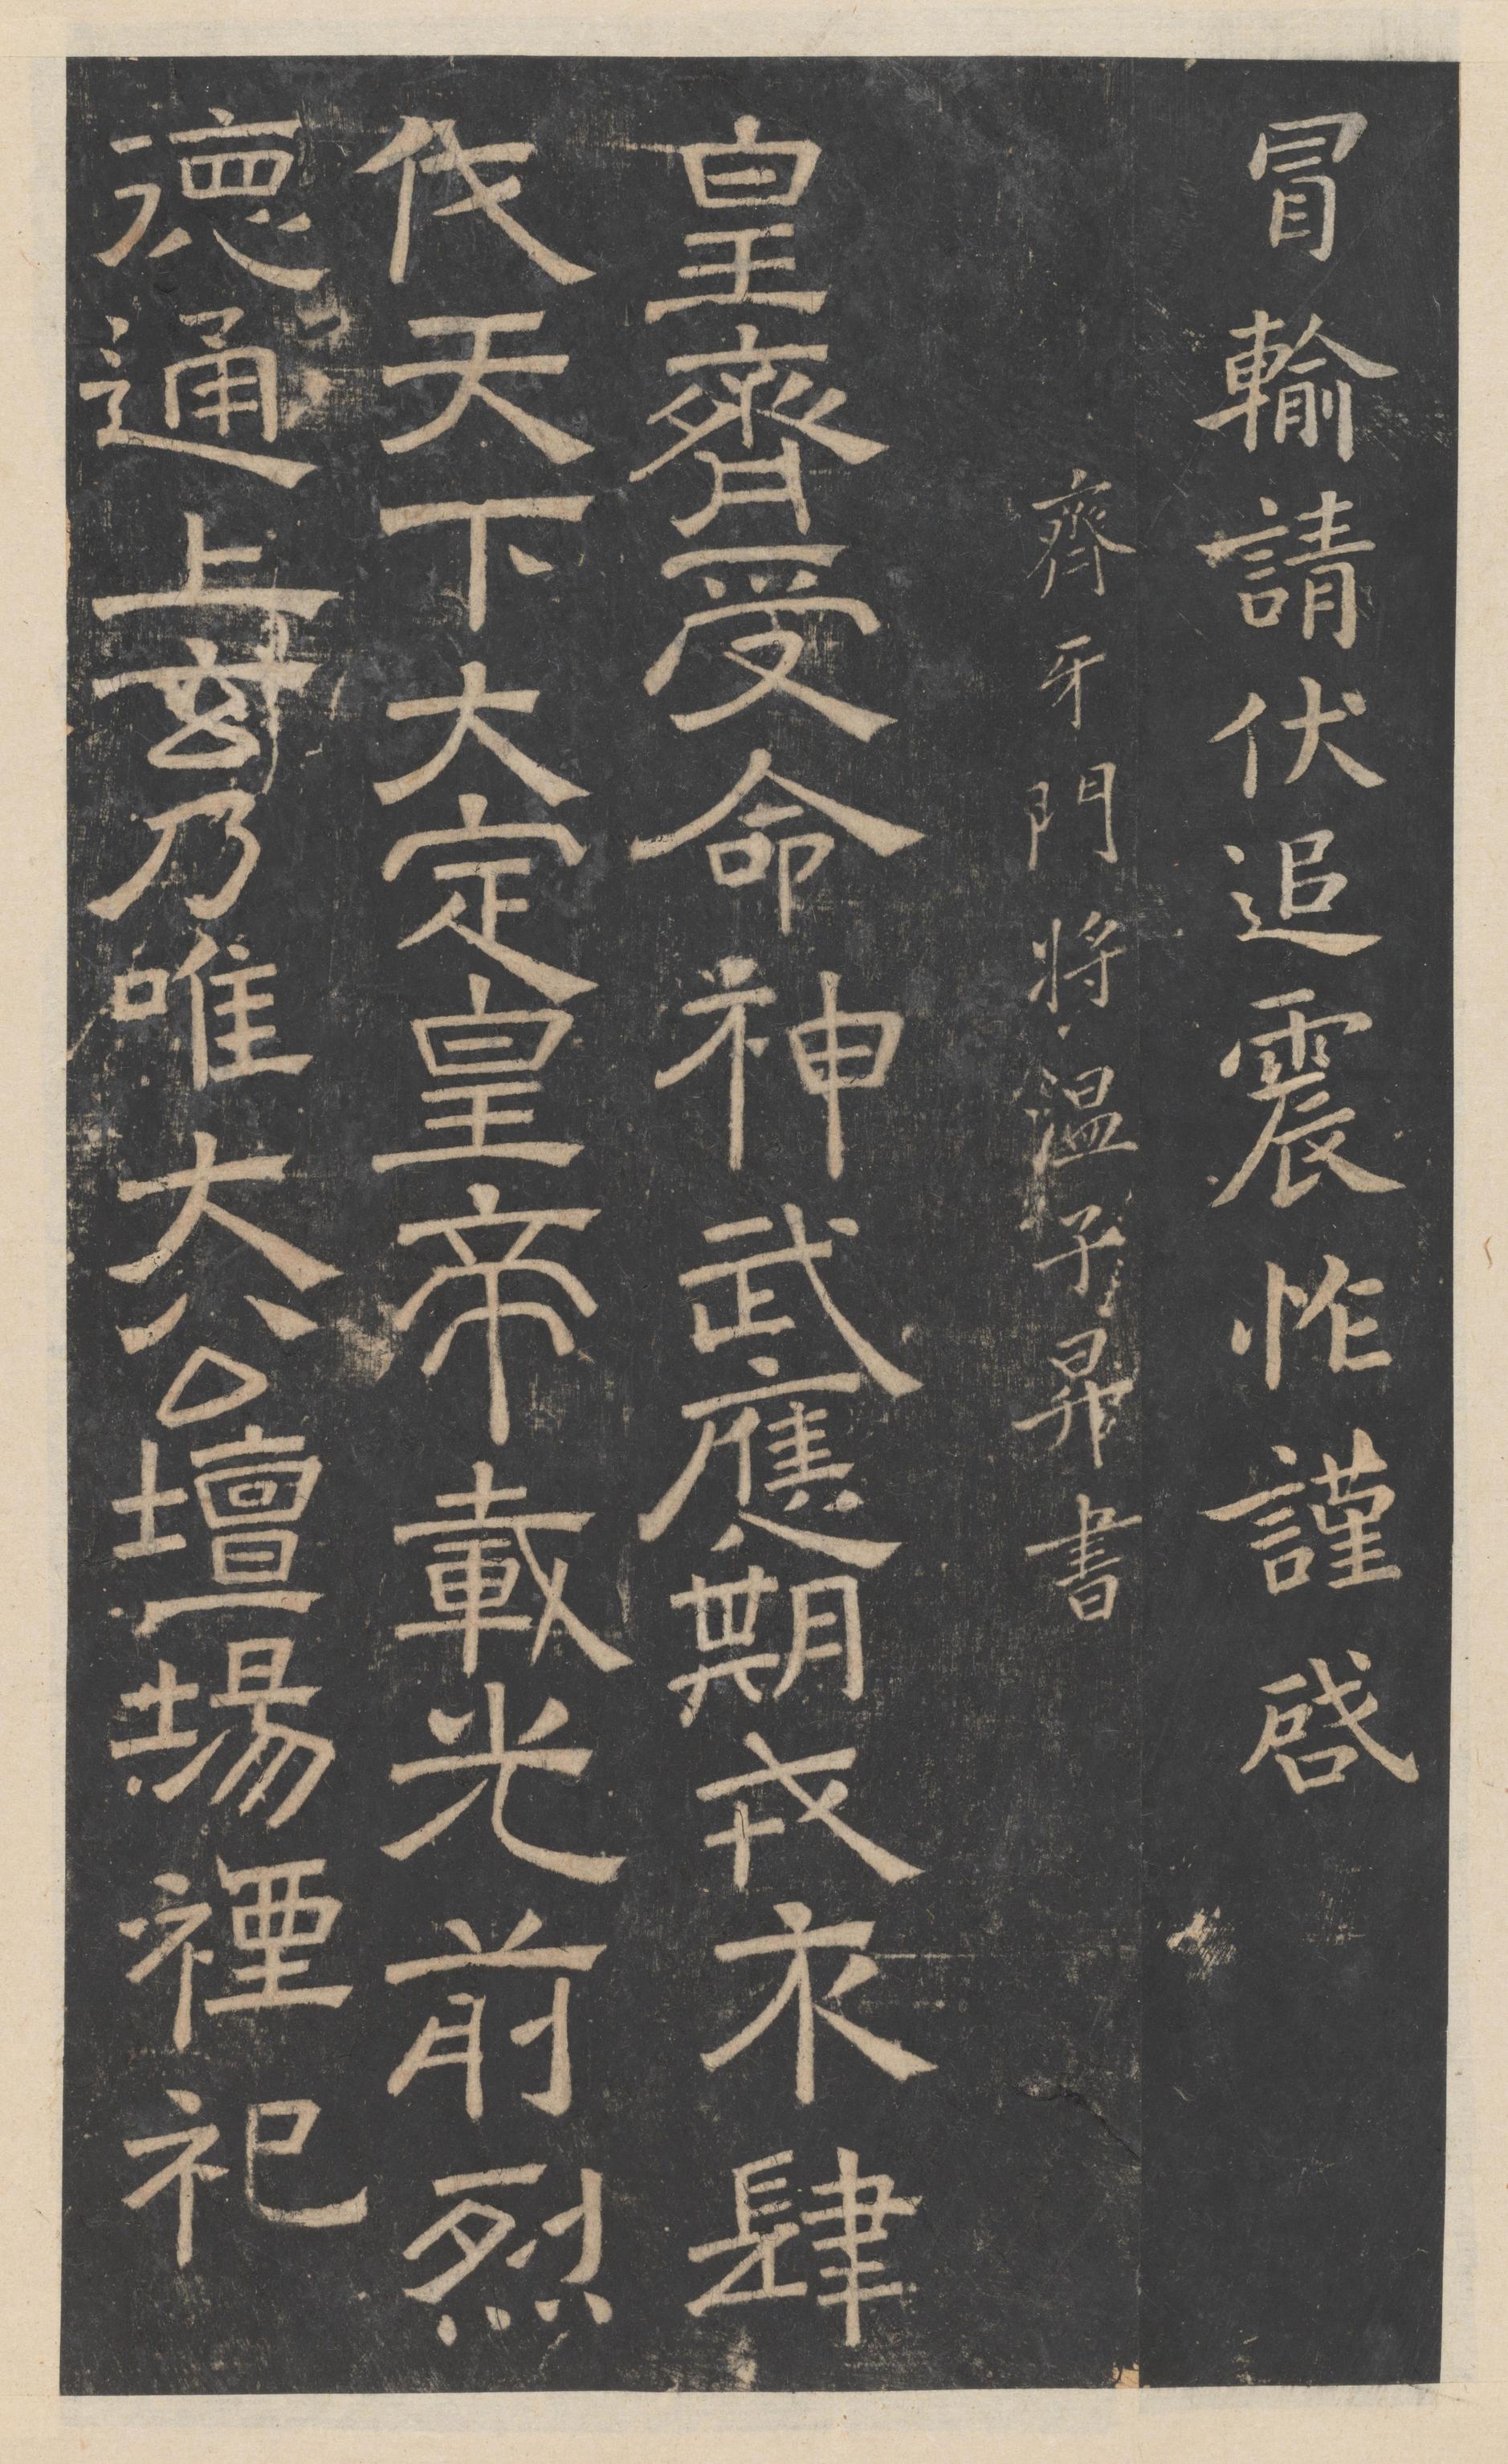 冒輸請伏追震怍謹啓
齊牙門將温子昇書
皇齊受命神武應期戎衣肆
伐天下大定皇帝載光前烈
德通上乃唯大公壇場禋祀